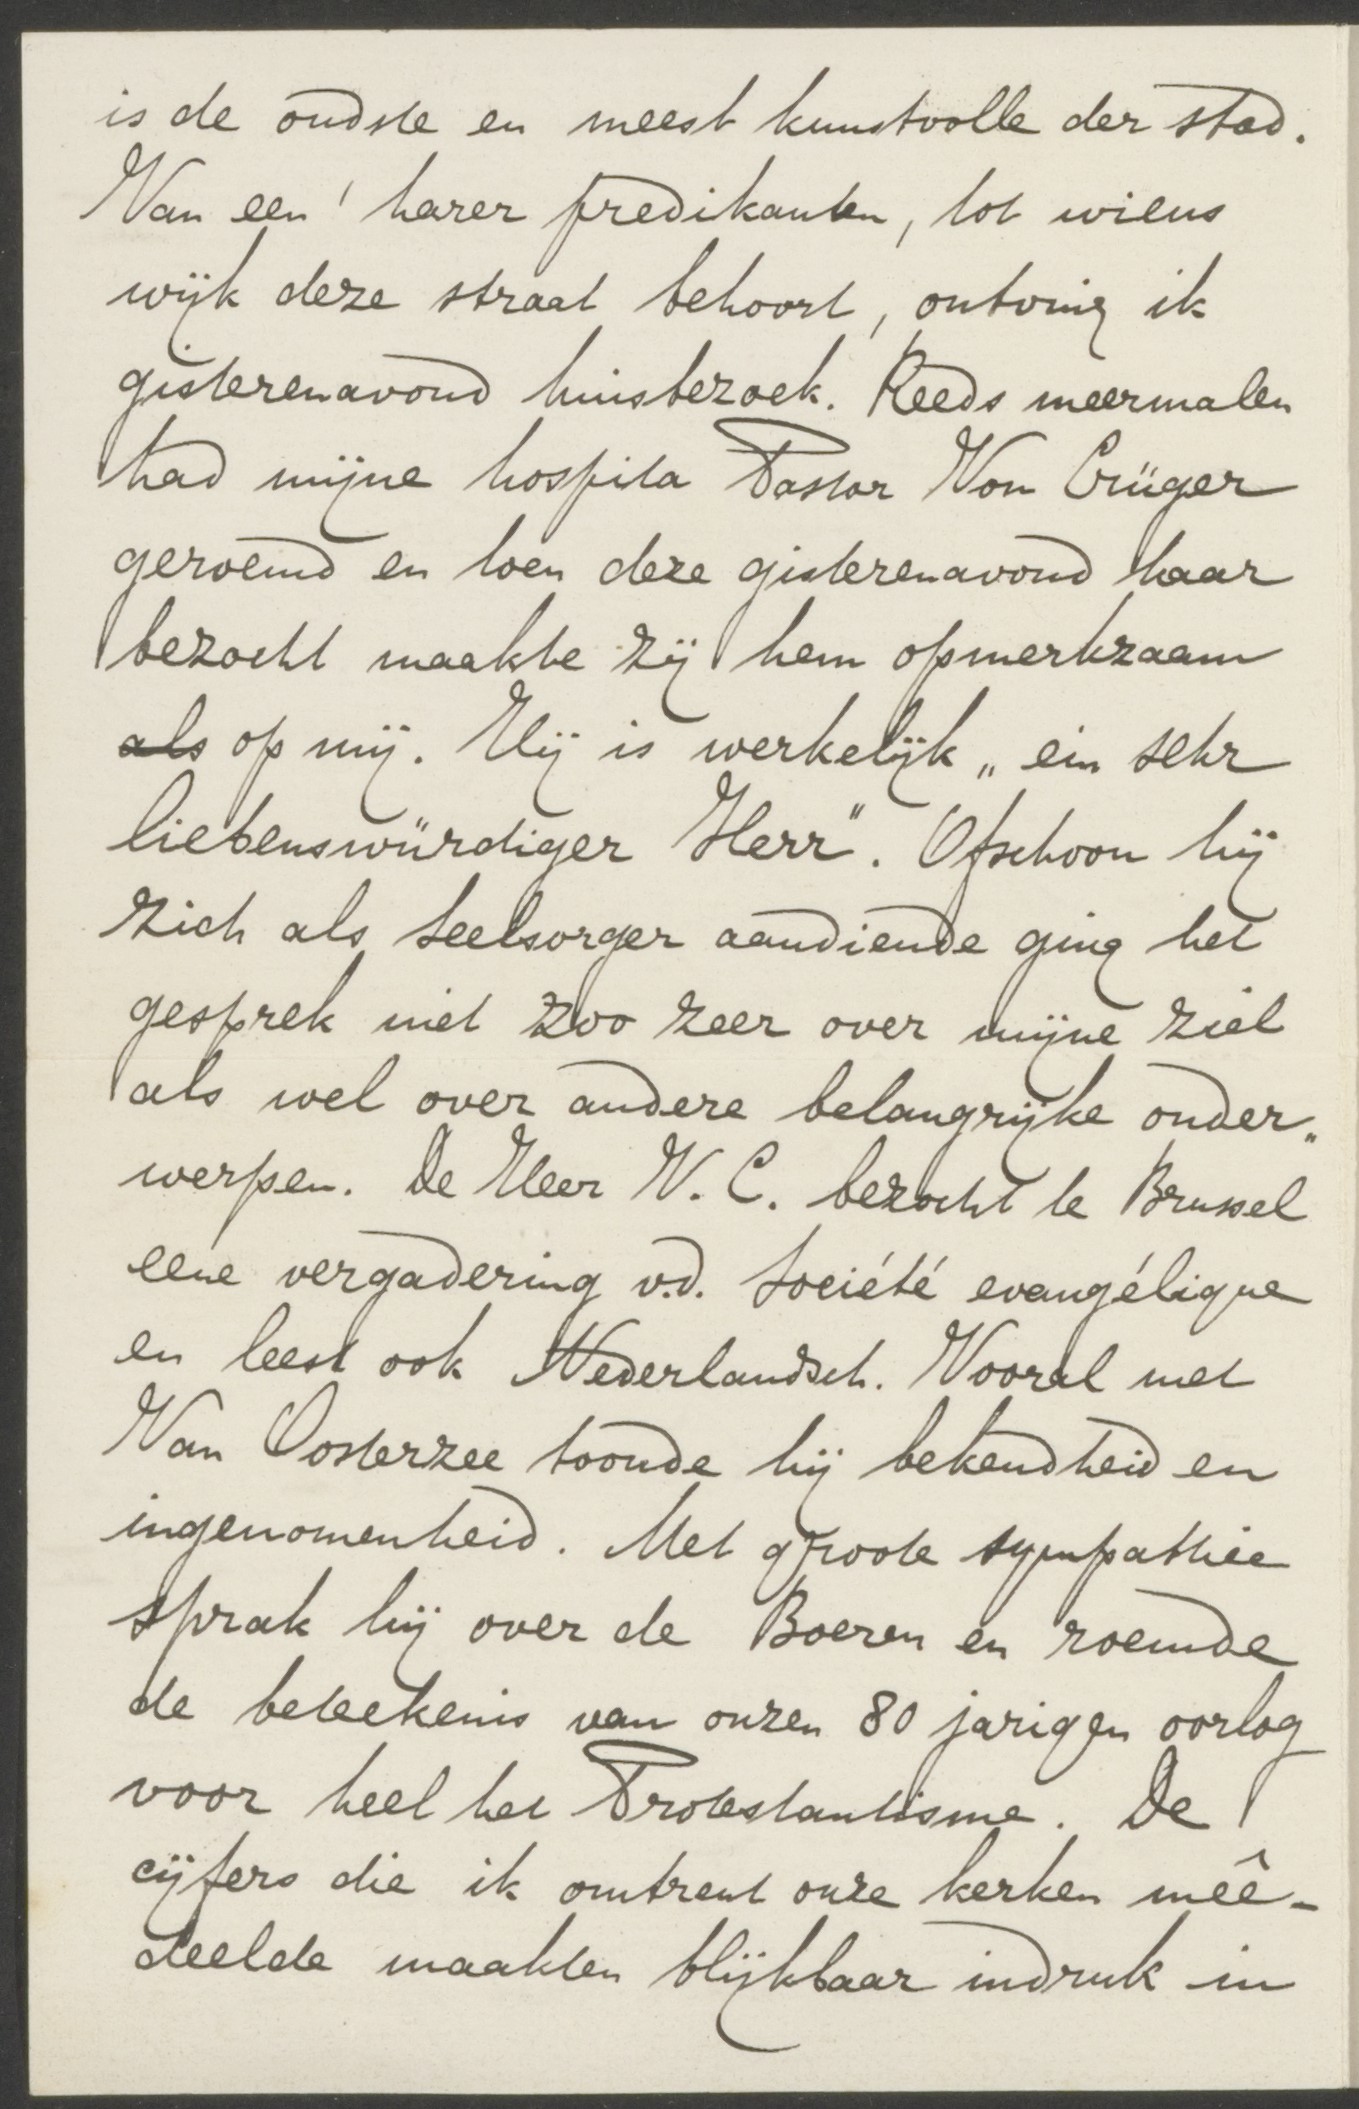 is de oudste en meest kunstvolle der stad.
Van een' harer predikanten, tot wiens
wijk deze straat behoort, ontving ik
gisterenavond huisbezoek. Reeds meermalen
had mijne hospita Pastor Von Crüger
geroemd en toen deze gisterenavond haar
bezocht maakte zij hem opmerkzaam
als op mij. Hij is werkelijk „ein sehr
liebenswürdiger Herr". Ofschoon hij
zich als Seelsorger aandiende ging het
gesprek niet zoo zeer over mijne ziel
als wel over andere belangrijke onder„
werpen. De Heer V. C. bezocht te Brussel
eene vergadering v.d. Société evangélique
en leest ook Nederlandsch. Vooral met
Van Oosterzee toonde hij bekendheid en
ingenomenheid. Met groote sympathie
sprak hij over de Boeren en roemde
de beteekenis van onzen 80 jarigen oorlog
voor heel het Protestantisme. De
cijfers die ik omtrent onze kerken mêe-
deelde maakten blijkbaar indruk in